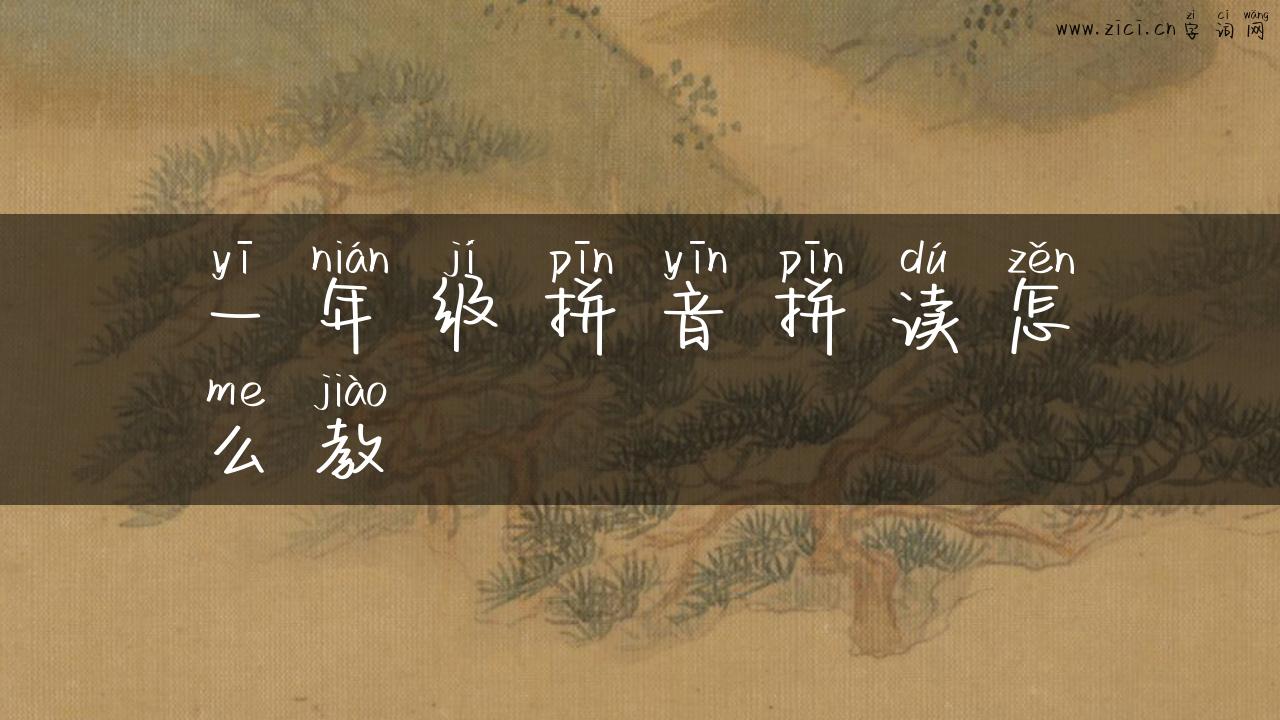 zì cí wǎng
www.zici.cn 字词网
yī nián jí pīn yīn pīn dú zěn
一年级拼音拼读怎
me jiào
么教